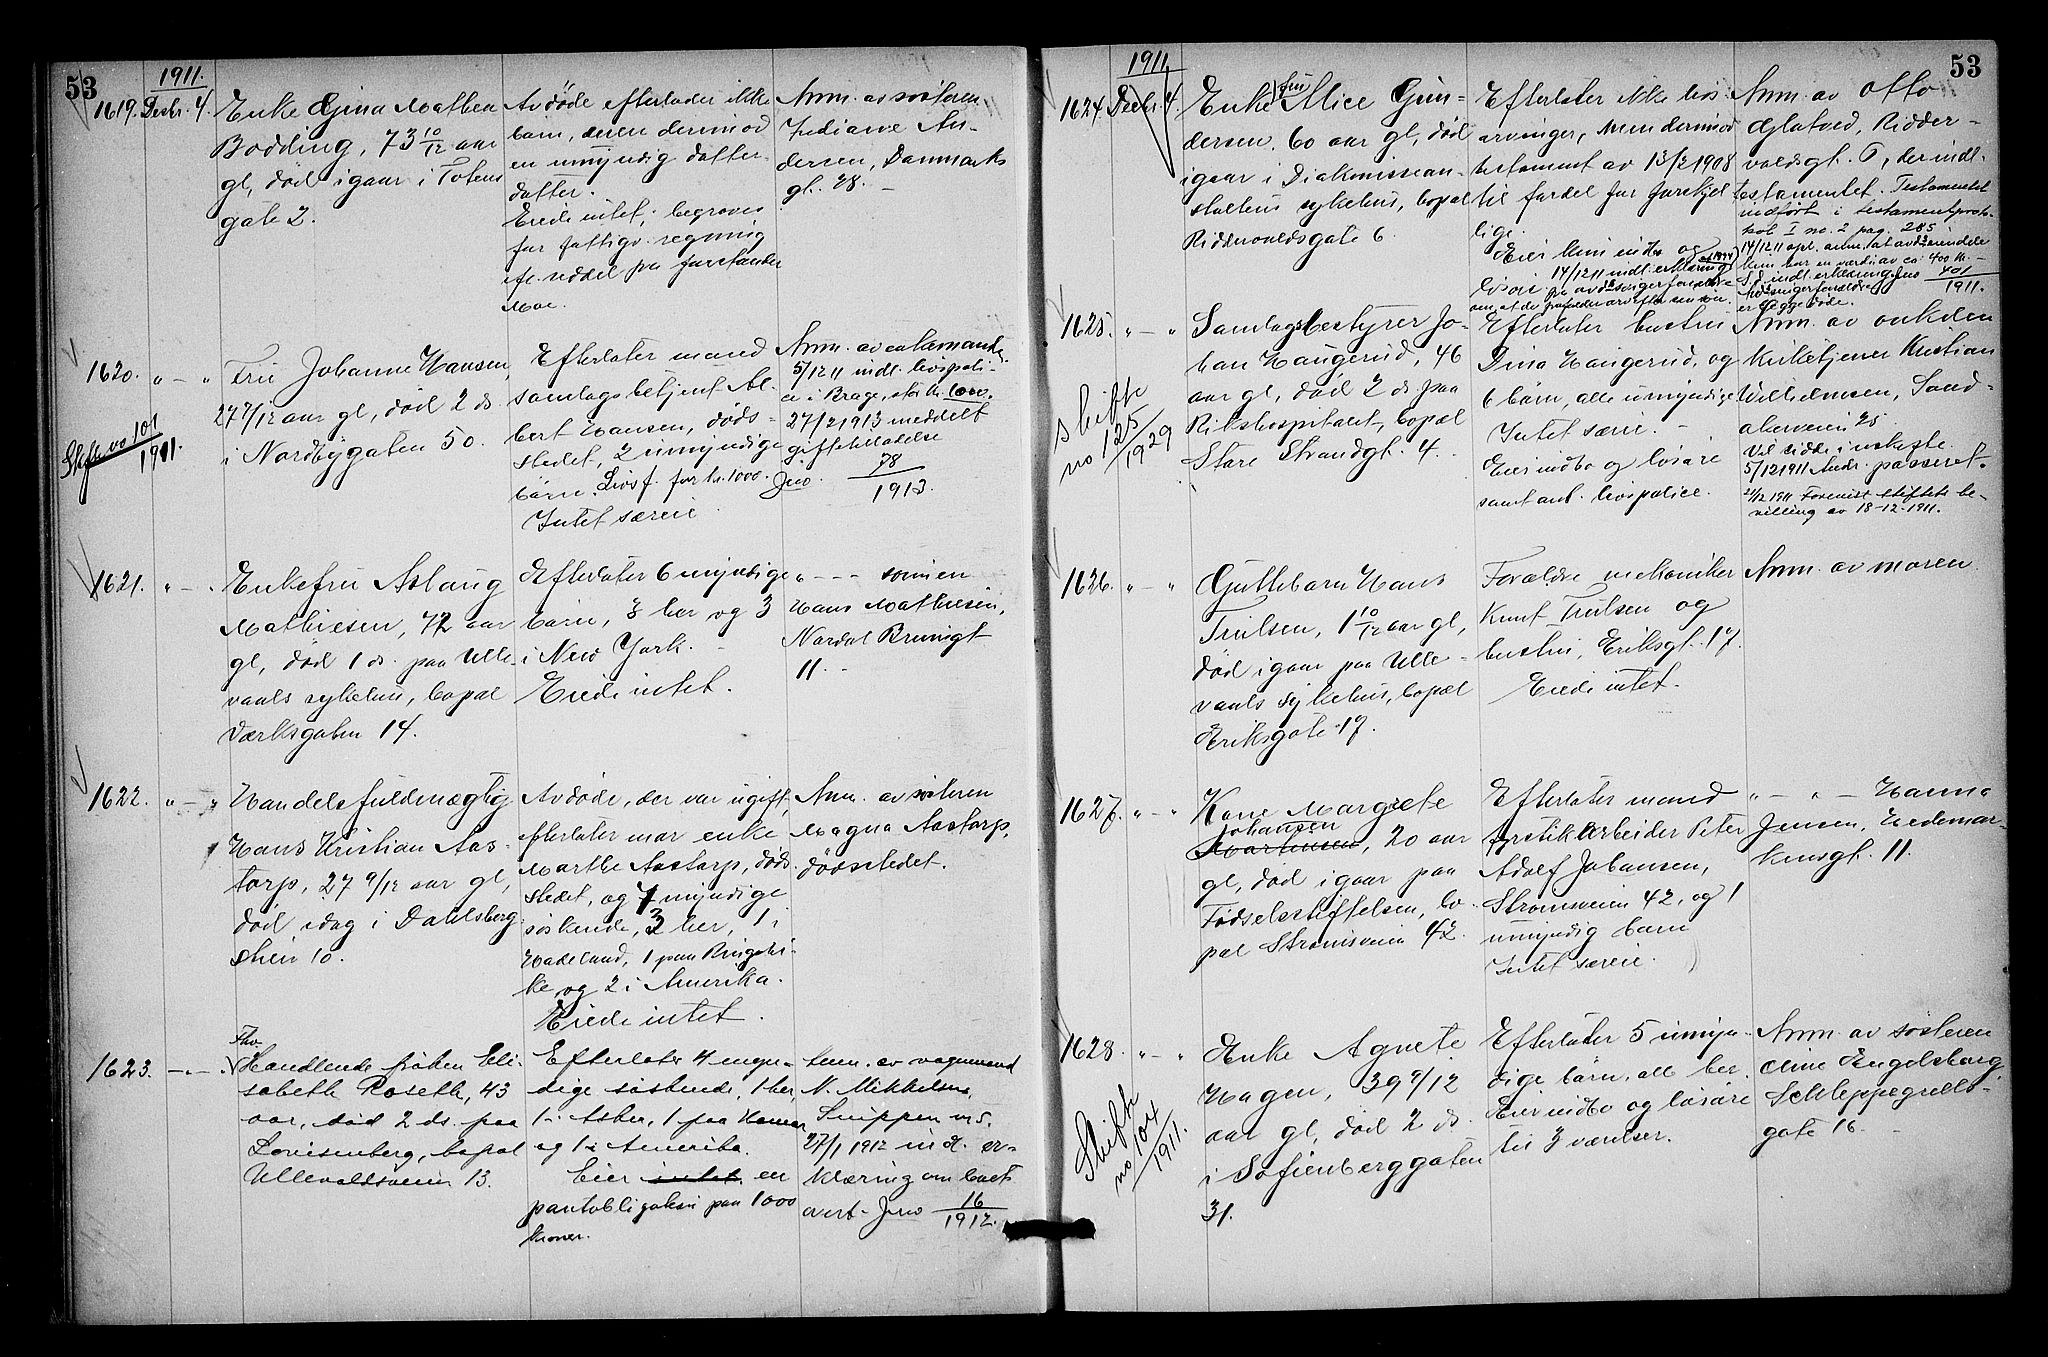 53
1911.
1619. Decbr. 4. Enke Gina Mathea
Bodding, 73 10/12 aar
gl, död igaar i Totens
gate 2.
Avdöde efterlader ikke
barn, deremod dermimod
en umyndig datter-
datter.
Eiede intet; begraves
for fattigv. regning
efter
Moe.
Anm. av søsteren
An-
dersen, Danmarks
gt. 28. –
1620. " – " Fru Johanne Hansen,
27 7/12 aar gl, död 2 ds
i Nordbygaten 50.
Skifte no 101
1911.
Efterlater mand
samlagsbetjent Al-
bert Hansen, döds-
stedet, 2 umyndige
börn. Livsf. for kr. 1000.
Intet særeie.
Anm. av enkemanden.
5/12 11 indl. livspoli-
ce i Brage, stor kr. 1000.
27/2 1913 meddelt
giftetilladelse
Jno. 78
1913.
1621. " – . Enkefru Aslaug
Mathiesen, 72 aar
gl, død 1 ds. paa Ulle-
vaals sykehus, bopæl
Værksgaten 14.
Efterlater 6 myndige
börn, 3 her og 3
i New York. –
Eiede intet.
" – – – sönnen
Hans Mathiesen,
Nordal Brunsgt
11. –
1622. " – " Handelsfuldmægtig
Hans Kristian Aas-
torp, 27 9/12 aar gl,
död idag i Dahlsberg-
stien 10.
Avdöde, der var ugift,
efterlater mor enke
Marthe Aastorp, döds-
stedet, og 7 myndige
söskende, 3 her, 1 i
Hadeland, 1 paa Ringeri-
ke og 2 i Amerika.
Eiede intet.
Anm. av søsteren
Magna Aastorp,
dödsstedet.
1623. – " – . Fhv.
Handlende fröken Eli-
sabeth Roseth, 43
aar, död 2 ds. paa
Lovisenberg, bopæl
Ullevoldsveien 13.
Efterlater 4 myn-
dige söskende, 1 her,
1 i Asker, 1 paa Hamar
og 1 i Amerika.
Eier intet, en
pantobligation paa 1000
kroner.
Anm. av vognmand
N. Mikkelsen,
Snippen no 5.
27/1 1912 indl. er-
klæring om boets
overt. – Jno 16
1912.
53
1911.
1624. Decbr. 4. Enke fru Alice Gun-
dersen, 60 aar gl, död
igaar i Diakonissean-
staltens sykehus, bopæl
Riddervoldsgate 6.
Efterlater ikke livs-
arvinger, men derimod
testament av 13/2 1908
til fordel for forskjel-
lige.
Eier kun indbo og
lösöre
14/12 11 indl. erklæring
Anm. av Otto
Glatved, Ridder-
voldsgt. 6, der indl.
testamentet. Testamentet
indført i testamentproto-
kol I no. 2 pag. 285
14/12 11 opl. anm. at avd. eiendele
kun har en værdi av ca. 400 kr. –
indl. erklæring. Jno 401
1911.
er begge døde.
1625. " – " Samlagsbestyrer Jo-
han Haugerud, 46
aar gl, död 2 ds paa
Rikshospitalet, bopæl
Store Strandgt. 4.
Skifte
no 125
1929
Efterlater hustru
Dina Haugerud, og
6 börn, alle umyndige.
Intet særeie. –
Eier indbo og lösöre
samt ant. livspolice.
Anm. av onkelen
kirketjener Kristian
Wilhelmsen, Sand-
akerveien 25.
Vil sidde i uskifte.
5/12 1911 Andr. passeret.
21/12 1911 Forevist skiftets be-
villing av 18-12-1911.
1626. " – " Guttebarn Hans
Trulsen, 1 10/12 aar gl,
död igaar paa Ulle-
vaals sykehus, bopæl
Eriksgate 17.
Forældre mekaniker
Knut Trulsen og
hustru, Eriksgt. 17.
Eiede intet.
Anm. av moren
1627. " – " Kone Margrete
Johansen
Martinsen, 20 aar
gl, död igaar paa
Födselsstiftelsen, bo-
pæl Strömsveien 42.
Efterlater mand
fabrikarbeider Peter
Adolf Johansen,
Strömsveien 42, og 1
umyndig barn
Intet særeie.
" – " – Hanna
Jensen, Hedemar-
kensgt. 11.
1628. " – " Enke Agnete
Hagen, 39 9/12
aar gl, död 2 ds.
i Sofienberggaten
31.
Skifte
no 104
1911.
Efterlater 5 umyn-
dige börn, alle her.
Eier indbo og lösöre
til 3 værelser.
Anm. av søsteren
Engelsborg
Schleppegrells-
gate 16. –